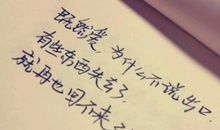 既然爱，为什么不说出口，
有些东西失去了，
就再也回不来了